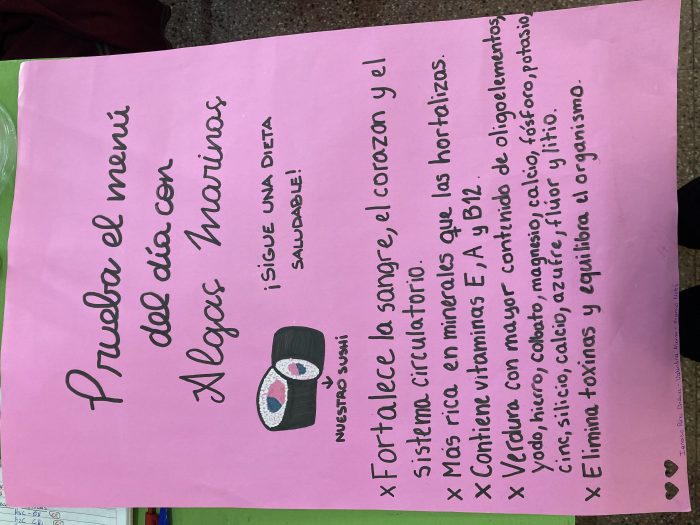 Prueba el menú
del día con
Algas marinas
¡SIGUE UNA DIETA
SALUDABLE!
NUESTRO SUSHI
x Fortalece la sangre, el corazon y el
sistema circulatorio.
x Más rica en minerales que las hortalizas.
x Contiene vitaminas E, A y B12.
x Verdura con mayor contenido de oligoelementos,
yodo, hierro, colbato, magnesio, calcio, fósforo, potasio,
cinc, silicio, calcio, azufre, flúor y litio.
x Elimina toxinas y equilibra el organismo.